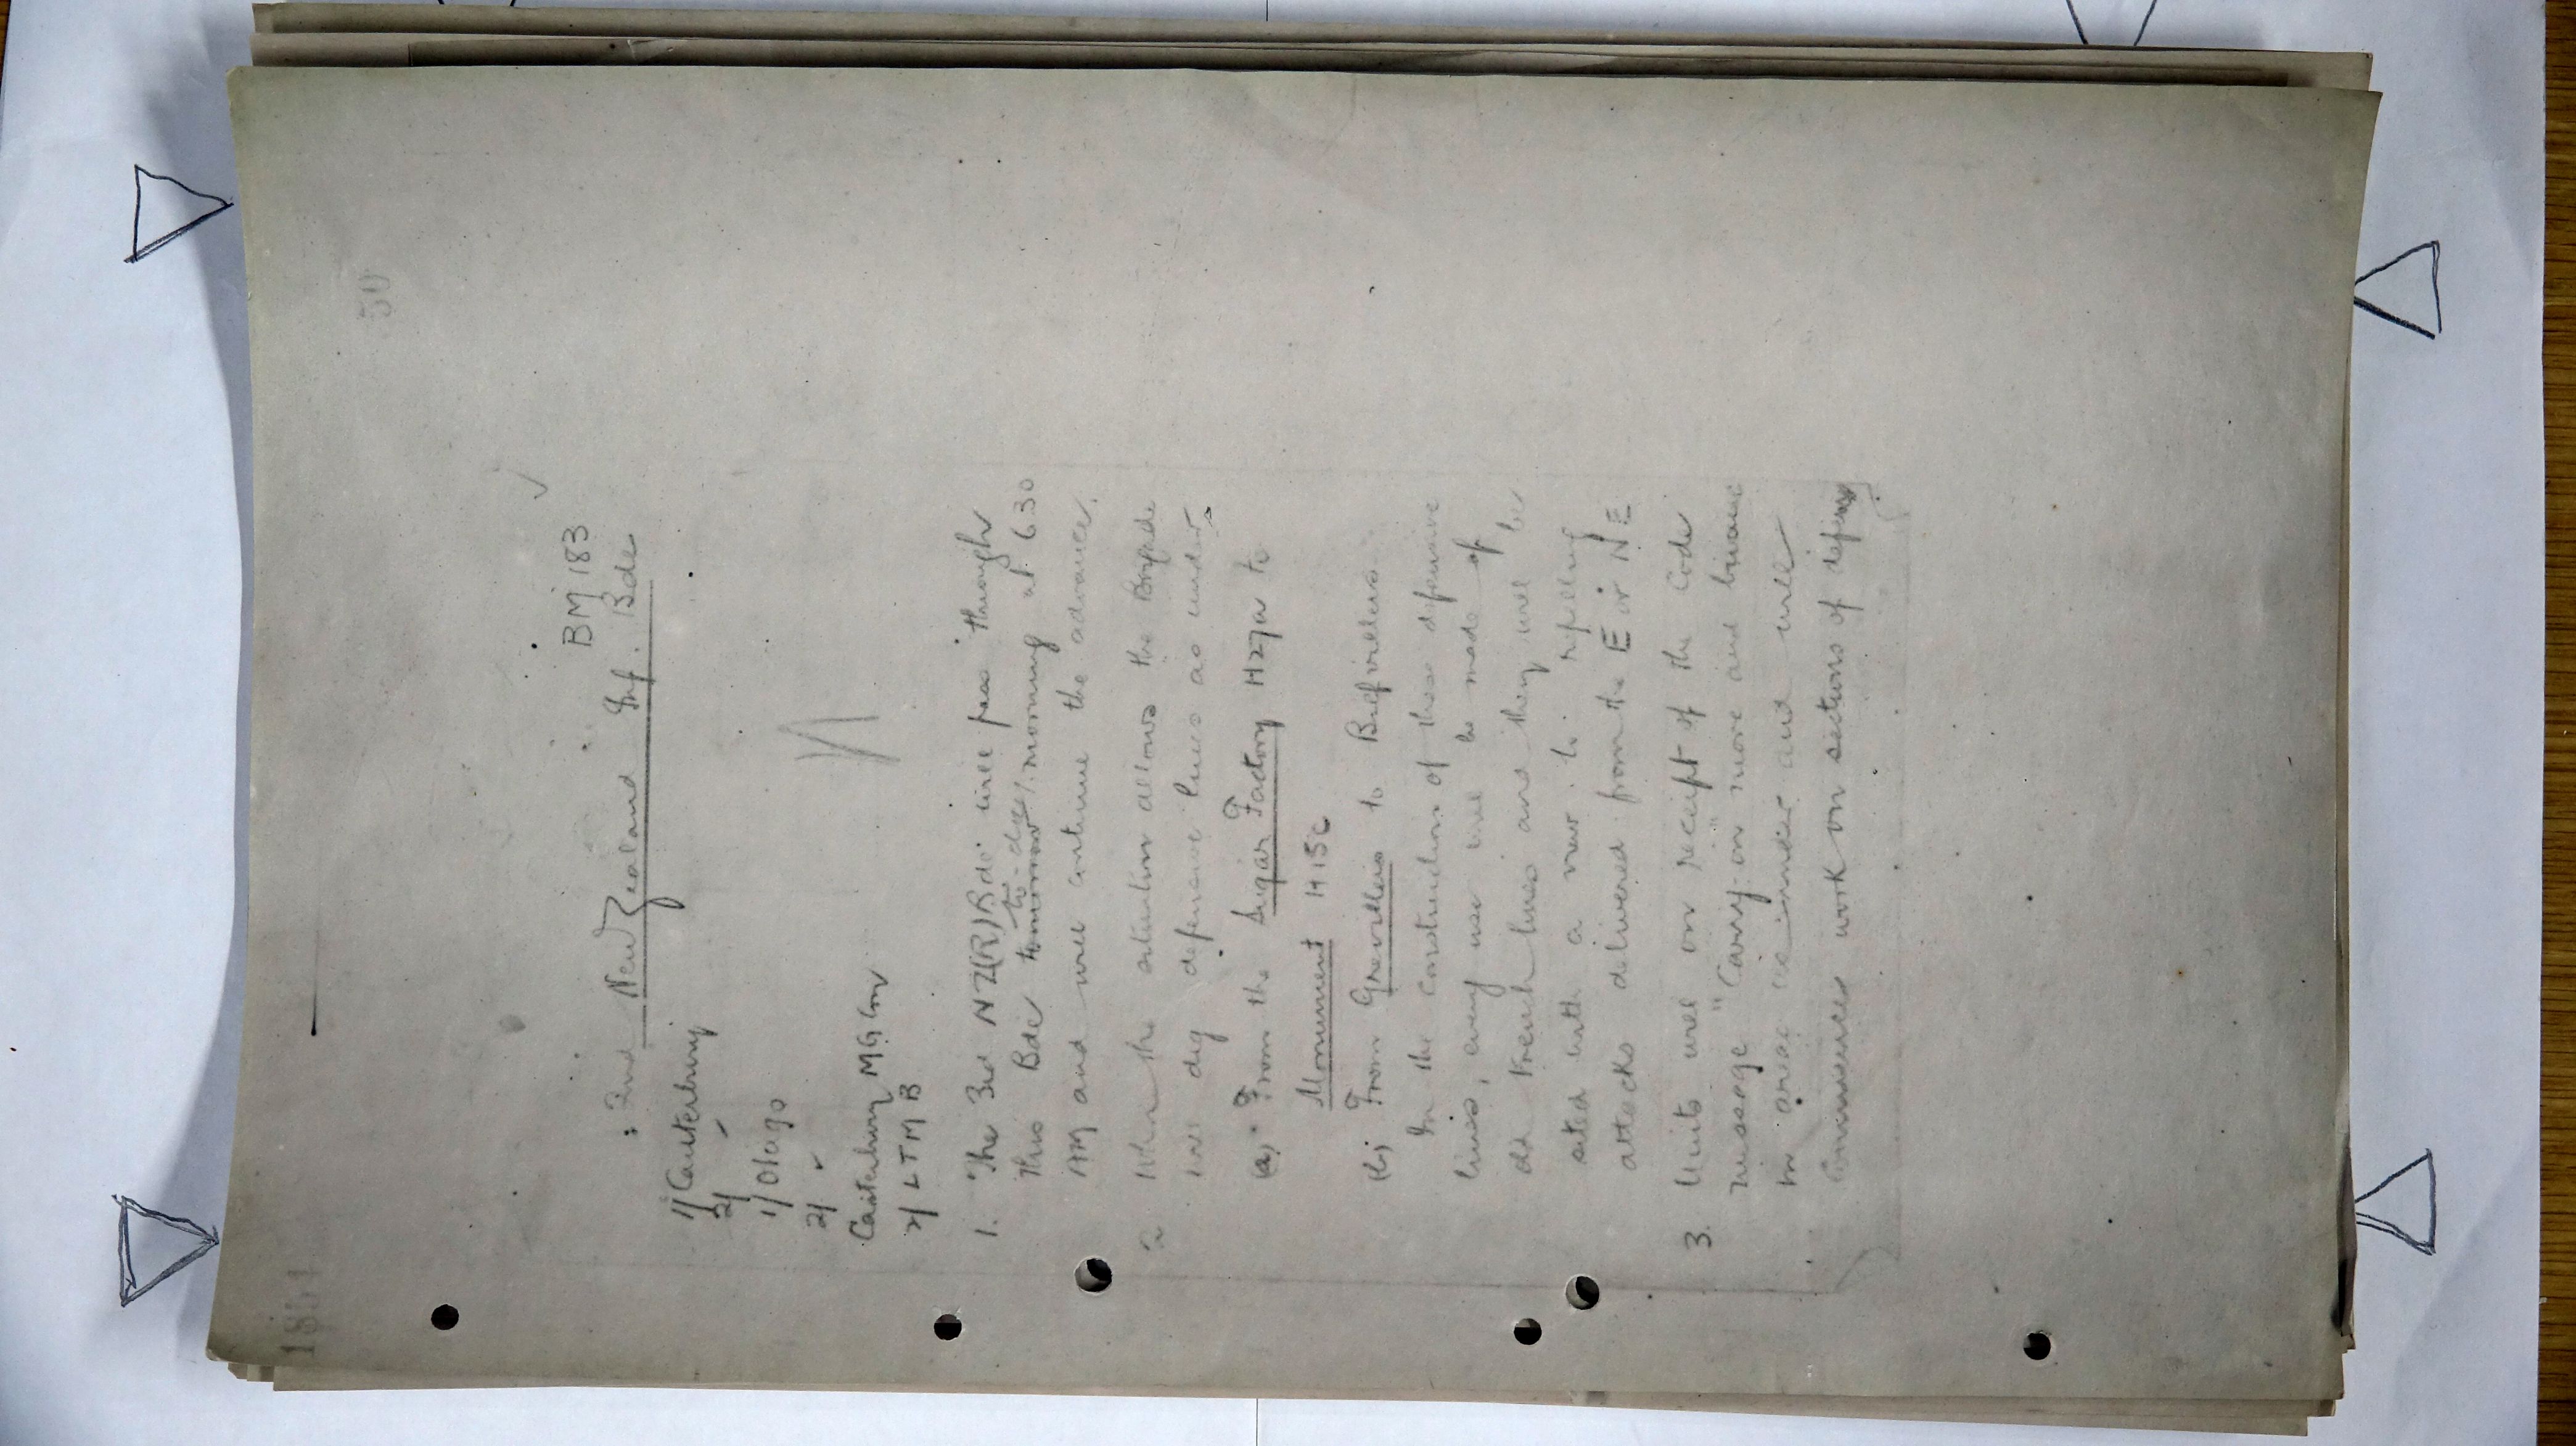 50
BM 183
2nd New Zealand Inf. Bde
1/ Canterbury
2/ "
1/ Otago
2/ "
Canterbury MG Coy
2/ L T M B
1. The 3rd NZ(R) Bde will pass through
this Bde tomorrow to-day morning at 6 30
AM and will continue the advance.
2 When the situation allows the Brigade
will dig defensive lines as under
(a) From the Sugar Factory H27a to
Monument H15c
(b) From Grevillers to Biefvillers.
In the construction of these defensive
lines, every use will be made of
old trench lines and they will be
sited with a view to repelling
attacks delivered from the E or N E
3. Units will on receipt of the Code
message "Carry on" move and bivouac
in areas as under and will
commence work on sections of defences
1851